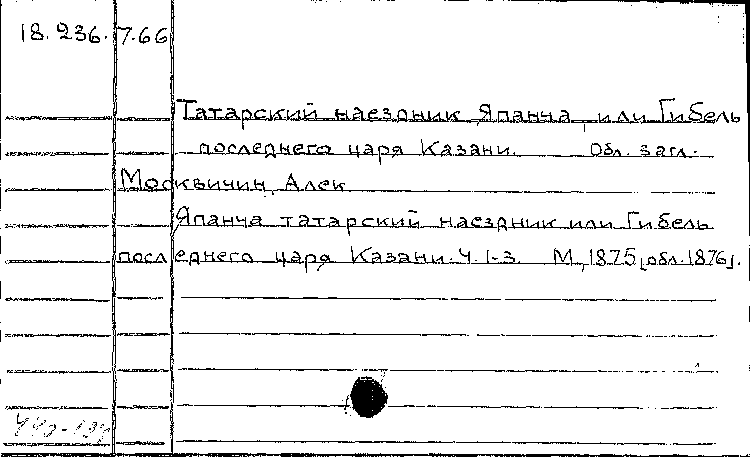 18.236.7.66
Татарский наездник Япанча, или Гибель
последнего царя Казани. Обл. загл.
Москвичин, Алек.
Япанча татарский наездник или Гибель
последнего царя Казани. Ч. 1-3. М., 1875 [обл. 1876].